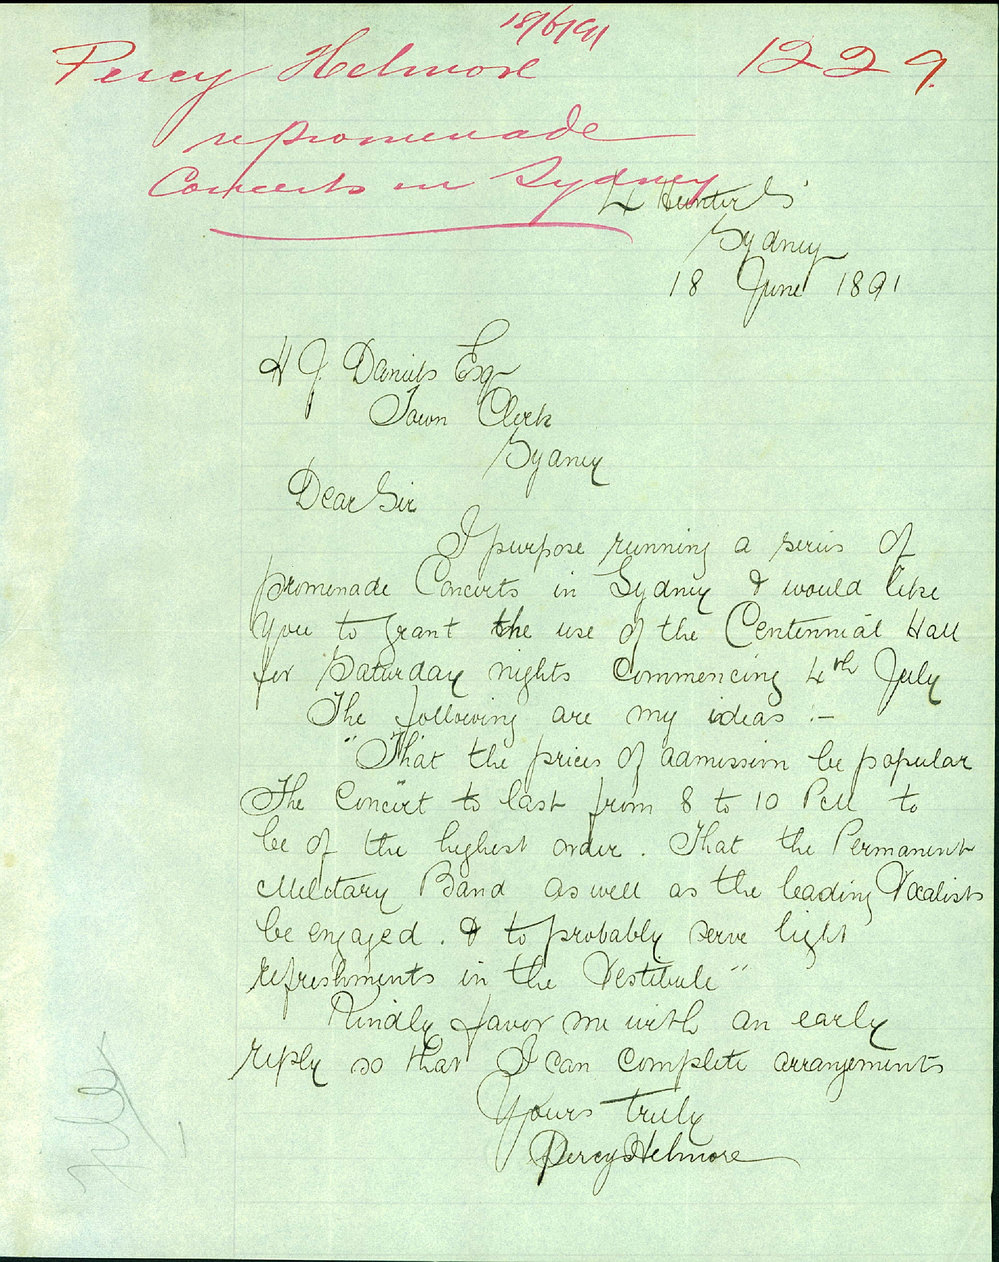 18/6/91
Percy Helmore 1229.
re promenade
Concerts in Sydney
4 Hunter St
Sydney
18 June 1891
H J. Daniels Esq
Town Clerk
Sydney
Dear Sir
I purpose running a series of
promenade Concerts in Sydney & would like
you to grant the use of the Centennial Hall
for Saturday nights commencing 4th July
The following are my ideas :-
"That the prices of admission be popular
The Concert to last from 8 to 10 PM to
be of the highest order. That the Permanent
Military Band as well as the leading Vocalists
be engaged. & to probably serve light
refreshments in the Vestibule"
Kindly favor me with an early
reply so that I can complete arrangements
Yours truly
Percy Helmore